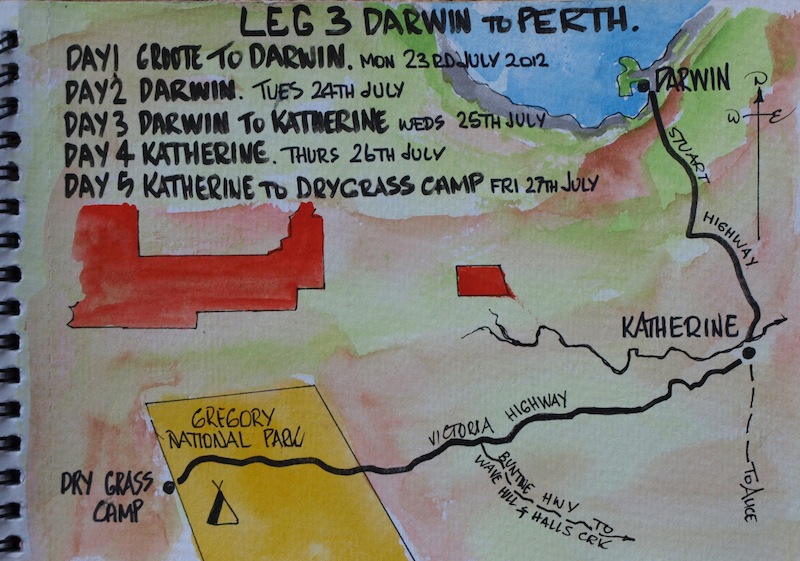 LEG 3 DARWIN TO PERTH.
DAY 1 GROOTE TO DARWIN. MON 23RD JULY 2012
DAY 2 DARWIN. TUES 24TH JULY
DAY 3 DARWIN TO KATHERINE WEDS 25TH JULY
DAY 4 KATHERINE. THURS 26TH JULY
DAY 5 KATHERINE TO DRYGRASS CAMP FRI 27TH JULY
DARWIN
N
W E
STUART
HIGHWAY
KATHERINE
GREGORY
NATIONAL PARK
VICTORIA HIGHWAY
DRY GRASS
CAMP
BUNTINE HWY TO
WAVE HILL & HALLS CRK
TO ALICE